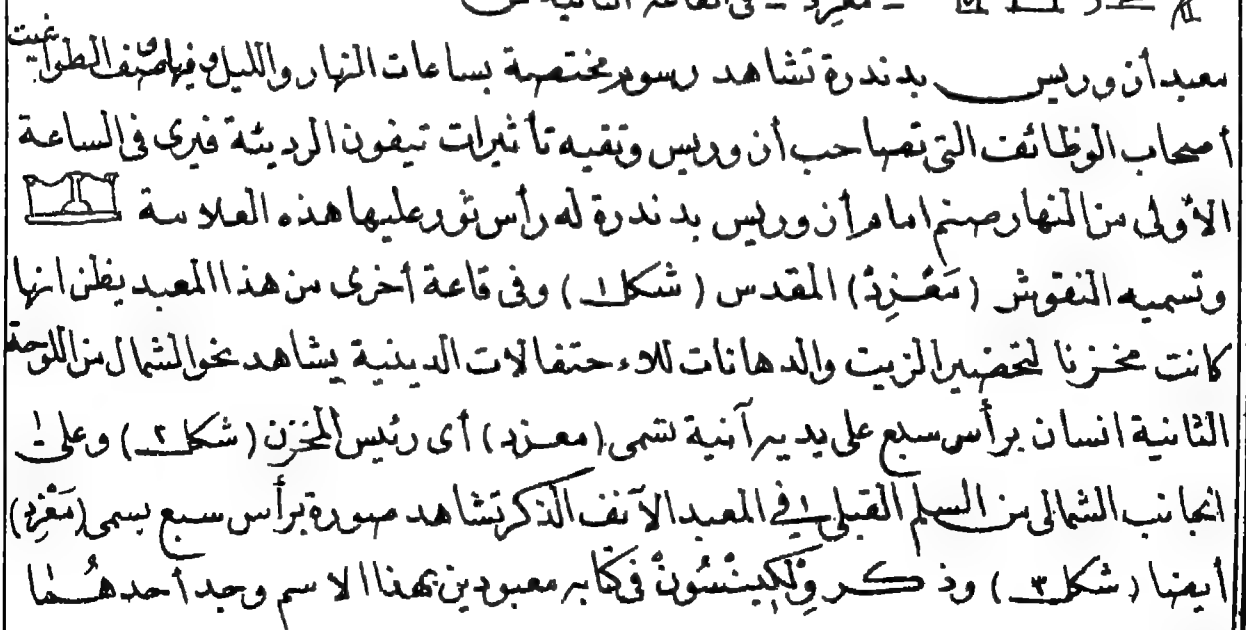 معزد - فى القاعة الثانية من
معبد أن وريس بدندرة تشاهد رسوم مختصة بساعات النهار والليل وفيها صف
أصحاب الوظائف التى تصاحب أن وريس وتقيه تأثيرات تيفون الرديئة فيرى فى الساعة
الأولى من النهار صنم امام أن وريس بدندرة له رأس ثور عليها هذه العلامة
وتسميه النقوش (مَعْزِدْ) المقدس (شكل ١) وفى قاعة أخرى من هذا المعبد يظن انها
كانت مخزنا لتحضير الزيت والدهانات للاءحتفالات الدينية يشاهد نحو الشمال من اللوحة
الثانية انسان برأس سبع على يديه آنية تسمى (معزد) أى رئيس المخزن (شكل ٢) وعلى
الجانب الشمالى من السلم القبلى فى المعبد الآنف الذكر تشاهد صورة برأس سبع يسمى (مَعْزِد)
أيضا (شكل ٣) وذكر وِلْكِينْسُونْ فى كتابه معبودين بهذا الاسم وجد أحدهُما